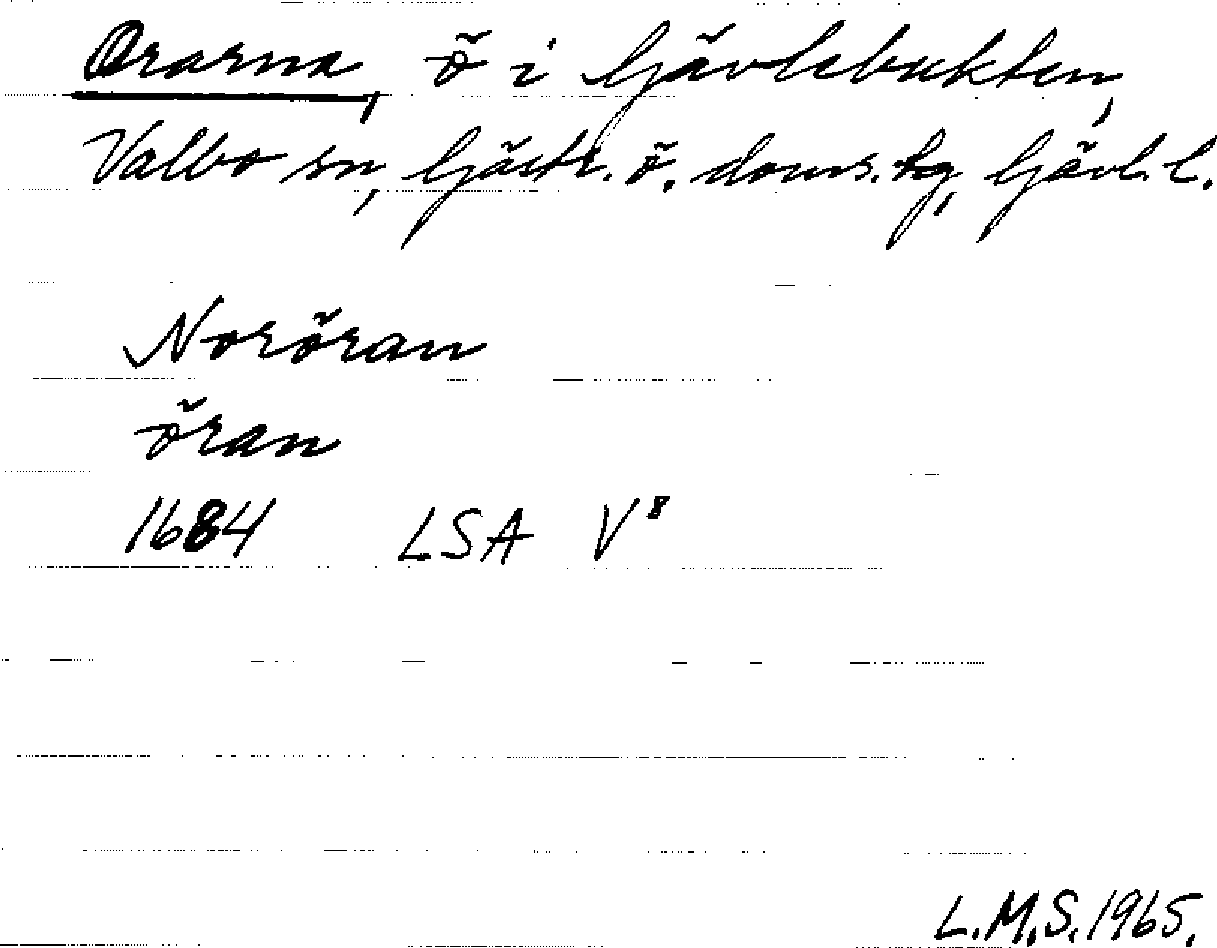 Orarna, ö i Gävlebukten,
Valbo sn, Gästr. ö. doms. tg, Gävl. l.
Noröran
öran
1684 LSA V⁸
L.M.S. 1965.